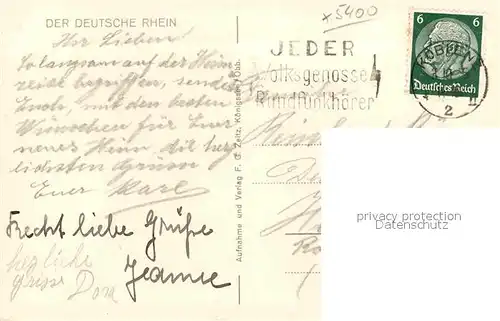 DER DEUTSCHE RHEIN
x5400
Ihr Lieben!
So langsam auf der Heim
reise begriffen, sende
Euch, mit den besten
Wünschen für Euer
neues Heim, die herz
lichsten Grüsse
Euer Karl
Recht liebe Grüße
Jeanne
herzliche
grüsse Dora
Aufnahme und Verlag F. G. Zeitz, Königsee/Thb.
JEDER
Volksgenosse
Rundfunkhörer
6 6
Deutsches Reich
KOBLENZ
2
privacy protection
Datenschutz